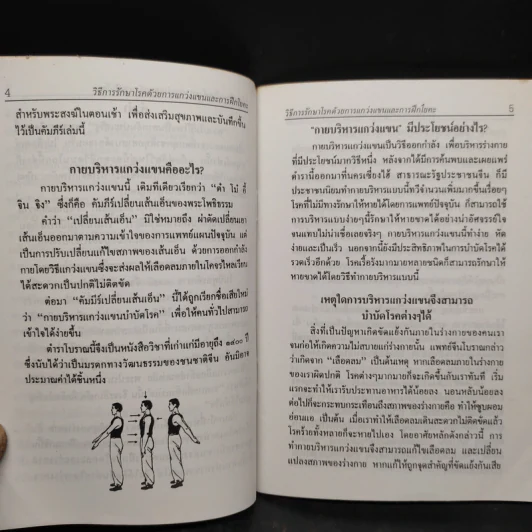 4
วิธีการรักษาโรคด้วยการแกว่งแขนและการฝึกโยคะ
สำหรับพระสงฆ์ในตอนเช้า เพื่อส่งเสริมสุขภาพและบันทึกขึ้น
ไว้เป็นคัมภีร์เล่มนี้
กายบริหารแกว่งแขนคืออะไร?
กายบริหารแกว่งแขนนี้ เดิมทีเดียวเรียกว่า “ตำ โม๋ อี้
จิน จิง” ซึ่งก็คือ คัมภีร์เปลี่ยนเส้นเอ็นของพระโพธิธรรม
คำว่า “เปลี่ยนเส้นเอ็น” มิใช่หมายถึง ผ่าตัดเปลี่ยนเอา
เส้นเอ็นออกมาตามความเข้าใจของการแพทย์แผนปัจจุบัน แต่
เป็นการปรับเปลี่ยนแก้ไขสภาพของเส้นเอ็น ด้วยการออกกำลัง
กายโดยวิธีแกว่งแขนซึ่งจะส่งผลให้เลือดลมภายในโคจรไหลเวียน
ได้สะดวกเป็นปกติไม่ติดขัด
ต่อมา “คัมภีร์เปลี่ยนเส้นเอ็น” นี้ได้ถูกเรียกชื่อเสียใหม่
ว่า “กายบริหารแกว่งแขนบำบัดโรค” เพื่อให้คนทั่วไปสามารถ
เข้าใจได้ง่ายขึ้น
ตำราโบราณนี้จึงเป็นหนังสือวิชาที่เก่าแก่มีอายุถึง ๑๔๐๐ ปี
ซึ่งนับได้ว่าเป็นมรดกทางวัฒนธรรมของชนชาติจีน อันมิอาจ
ประมาณค่าได้ชิ้นหนึ่ง
วิธีการรักษาโรคด้วยการแกว่งแขนและการฝึกโยคะ
5
“กายบริหารแกว่งแขน” มีประโยชน์อย่างไร?
กายบริหารแกว่งแขนเป็นวิธีออกกำลัง เพื่อบริหารร่างกาย
ที่มีประโยชน์มากวิธีหนึ่ง หลังจากได้มีการค้นพบและเผยแพร่
ตำรานี้ออกมาที่นครเซี่ยงไฮ้ สาธารณะรัฐประชาชนจีน ก็มี
ประชาชนนิยมทำกายบริหารแบบนี้ทวีจำนวนเพิ่มมากขึ้นเรื่อยๆ
โรคที่ไม่มีทางรักษาให้หายได้โดยการแพทย์ปัจจุบัน ก็สามารถใช้
การบริหารแบบง่ายๆนี้รักษาให้หายขาดได้อย่างน่าอัศจรรย์ใจ
จนแทบไม่น่าเชื่อเลยจริงๆ กายบริหารแกว่งแขนนี้ทำง่าย หัด
ง่ายและเป็นเร็ว นอกจากนี้ยังมีประสิทธิภาพในการบำบัดโรคได้
รวดเร็วอีกด้วย โรคเรื้อรังมากมายหลายชนิดก็สามารถรักษาให้
หายขาดได้โดยวิธีทำกายบริหารแบบนี้
เหตุใดการบริหารแกว่งแขนจึงสามารถ
บำบัดโรคต่างๆได้
สิ่งที่เป็นปัญหาเกิดขัดแย้งกันภายในร่างกายของคนเรา
จนก่อให้เกิดความไม่สบายแก่ร่างกายนั้น แพทย์จีนโบราณกล่าว
ว่าเกิดจาก “เลือดลม” เป็นต้นเหตุ หากเลือดลมในร่างกาย
ของเราผิดปกติ โรคต่างๆมากมายก็จะเกิดขึ้นกับเราทันที เริ่ม
แรกจะทำให้เรารับประทานอาหารได้น้อยลง นอนหลับน้อยลง
ต่อไปก็จะกระทบกระเทือนถึงสภาพของร่างกายคือ ทำให้ซูบผอม
อ่อนแอ เป็นต้น เมื่อเราทำให้เลือดลมเดินสะดวกไม่ติดขัดแล้ว
โรคร้ายทั้งหลายก็จะหายไปเอง โดยอาศัยหลักดังกล่าวนี้ การ
ทำกายบริหารแกว่งแขนจึงสามารถแก้ไขเลือดลม และเปลี่ยน
แปลงสภาพของร่างกาย หากแก้ให้ถูกจุดสำคัญที่ขัดแย้งกันเสีย